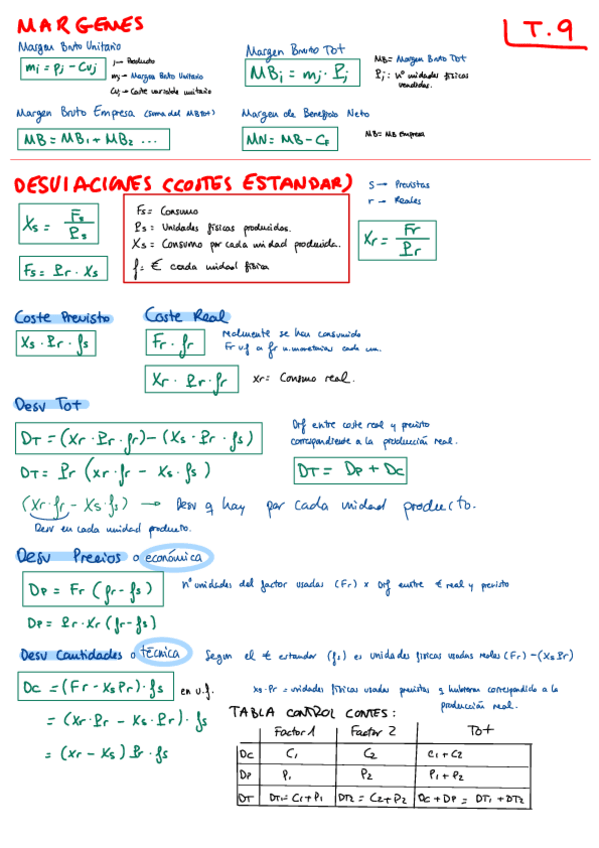 MARGENES
T.9
Margen Bruto Unitario
mj = pj - Cvj
j → Producto
mj → Margen Bruto Unitario
Cvj → Coste variable unitario
Margen Bruto Tot
MBj = mj · Pj
MB = Margen Bruto Tot
Pj: nº unidades físicas vendidas.
Margen Bruto Empresa (suma del MBtot)
MB = MB1 + MB2 ...
Margen de Beneficio Neto
MN = MB - CF
MB = MB Empresa
DESVIACIONES (COSTES ESTANDAR)
s → Previstas
r → Reales
Xs = Fs / Ps
Fs = Pr · Xs
Fs = Consumo
Ps = Unidades físicas producidas.
Xs = Consumo por cada unidad producida.
f = € cada unidad física
Xr = Fr / Pr
Coste Previsto
Xs · Pr · fs
Coste Real
Fr · fr
realmente se han consumido
Fr u.f a fr u.monetarias cada una.
Xr · Pr · fr
Xr = Consumo real.
Desv Tot
DT = (Xr · Pr · fr) - (Xs · Pr · fs)
Drf entre coste real y previsto
correspondiente a la producción real.
DT = Pr (Xr · fr - Xs · fs)
DT = DP + DC
(Xr · fr - Xs · fs) → Desv q hay por cada unidad producto.
Desv en cada unidad producto.
Desv Precios o económica
DP = Fr (fr - fs)
nº unidades del factor usadas (Fr) x Drf entre € real y previsto
DP = Pr · Xr (fr - fs)
Desv Cantidades o técnica
Segun el € estandar (fs) es unidades fisicas usadas reales (Fr) - (Xs Pr)
DC = (Fr - Xs Pr) · fs
en u.f.
Xs · Pr = unidades físicas usadas previstas q hubieran correspondido a la
producción real.
= (Xr · Pr - Xs · Pr) · fs
= (Xr - Xs) Pr · fs
TABLA CONTROL CONTES:
Factor 1 Factor 2 Tot
DC C1 C2 C1 + C2
DP P1 P2 P1 + P2
DT DT1 = C1 + P1 DT2 = C2 + P2 DC + DP = DT1 + DT2